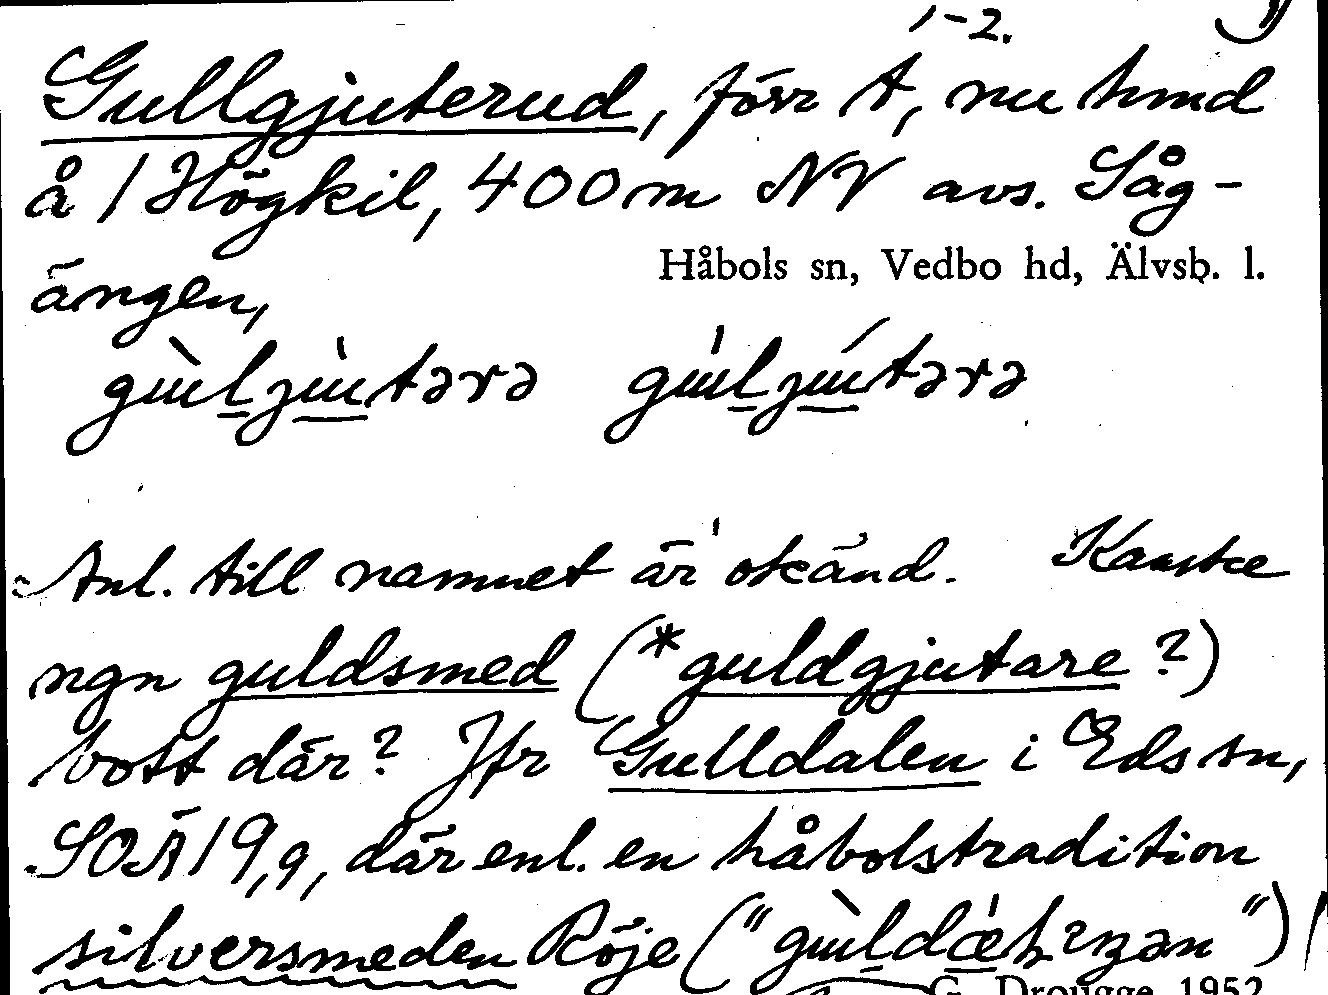 1-2.
Gullgjuterud, förr t, nu hmd
å 1 Högkil, 400 m NV avs. Såg-
ängen,
Håbols sn, Vedbo hd, Älvsb. l.
Anl. till namnet är okänd. Kanske
ngn guldsmed (*guldgjutare?)
bott där? Jfr Gulldalen i Eds sn,
SOÄ 19,9, där enl. en håbolstradition
silversmeden Röje ("
G. Drougge 1952